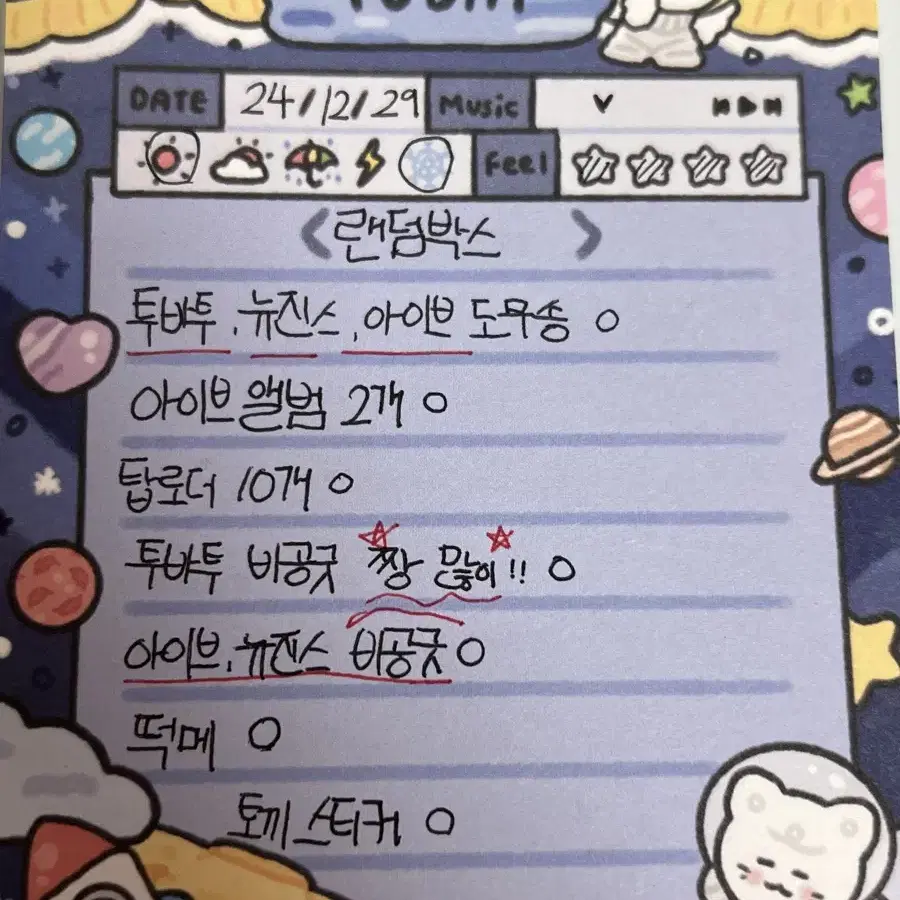 DATE 24/12/29 Music v
Feel
<랜덤박스>
투바투, 뉴진스, 아이브 도무송 O
아이브 앨범 2개 O
탑로더 10개 O
투바투 비공굿 짱 많이!! O
아이브, 뉴진스 비공굿 O
떡메 O
토끼 스티커 O